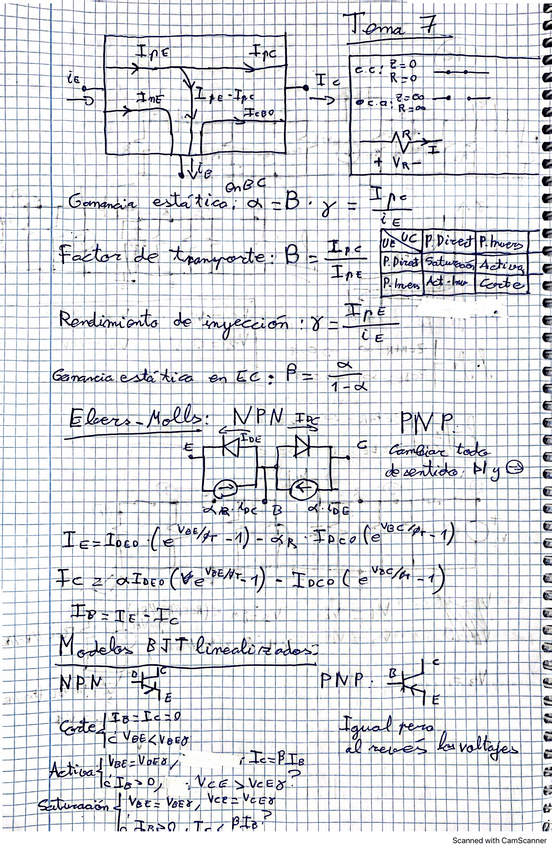 Tema 7
IpE IpC
iE InE IpE-IpC Ic
ICBO
iB
c.c.: Z=0
R=0
c.a: Z=∞
R=∞
R I
+ VR -
en BC
Ganancia estática: α = B · γ = Ipc / iE
Factor de transporte: B = Ipc / IpE
UE UC P. Direct P. Invers
P. Direct Saturación Activa
P. Invers Act-Inv Corte
Rendimiento de inyección: γ = IpE / iE
Ganancia estática en EC: β = α / 1-α
Ebers-Molls: NPN PNP.
IDE IDC
E C
Cambiar todo
de sentido:
y
αR·iDC B α·iDE
IE = IDEO · (e^VBE/φT - 1) - αR · IDCO (e^VBC/φT - 1)
Ic = αIDEO (e^VBE/φT - 1) - IDCO (e^VBC/φT - 1)
IB = IE - Ic
Modelos BJT linealizados:
NPN B C E PNP: B C E
Corte IB = Ic = 0
¿ VBE < VBEγ
Igual pero
al revés los voltajes
Activa VBE = VBEγ, ; Ic = βIB
¿ IB > 0, VCE > VCEγ?
Saturación VBE = VBEγ, VCE = VCEγ
¿ IB > 0, Ic < βIB?
Scanned with CamScanner